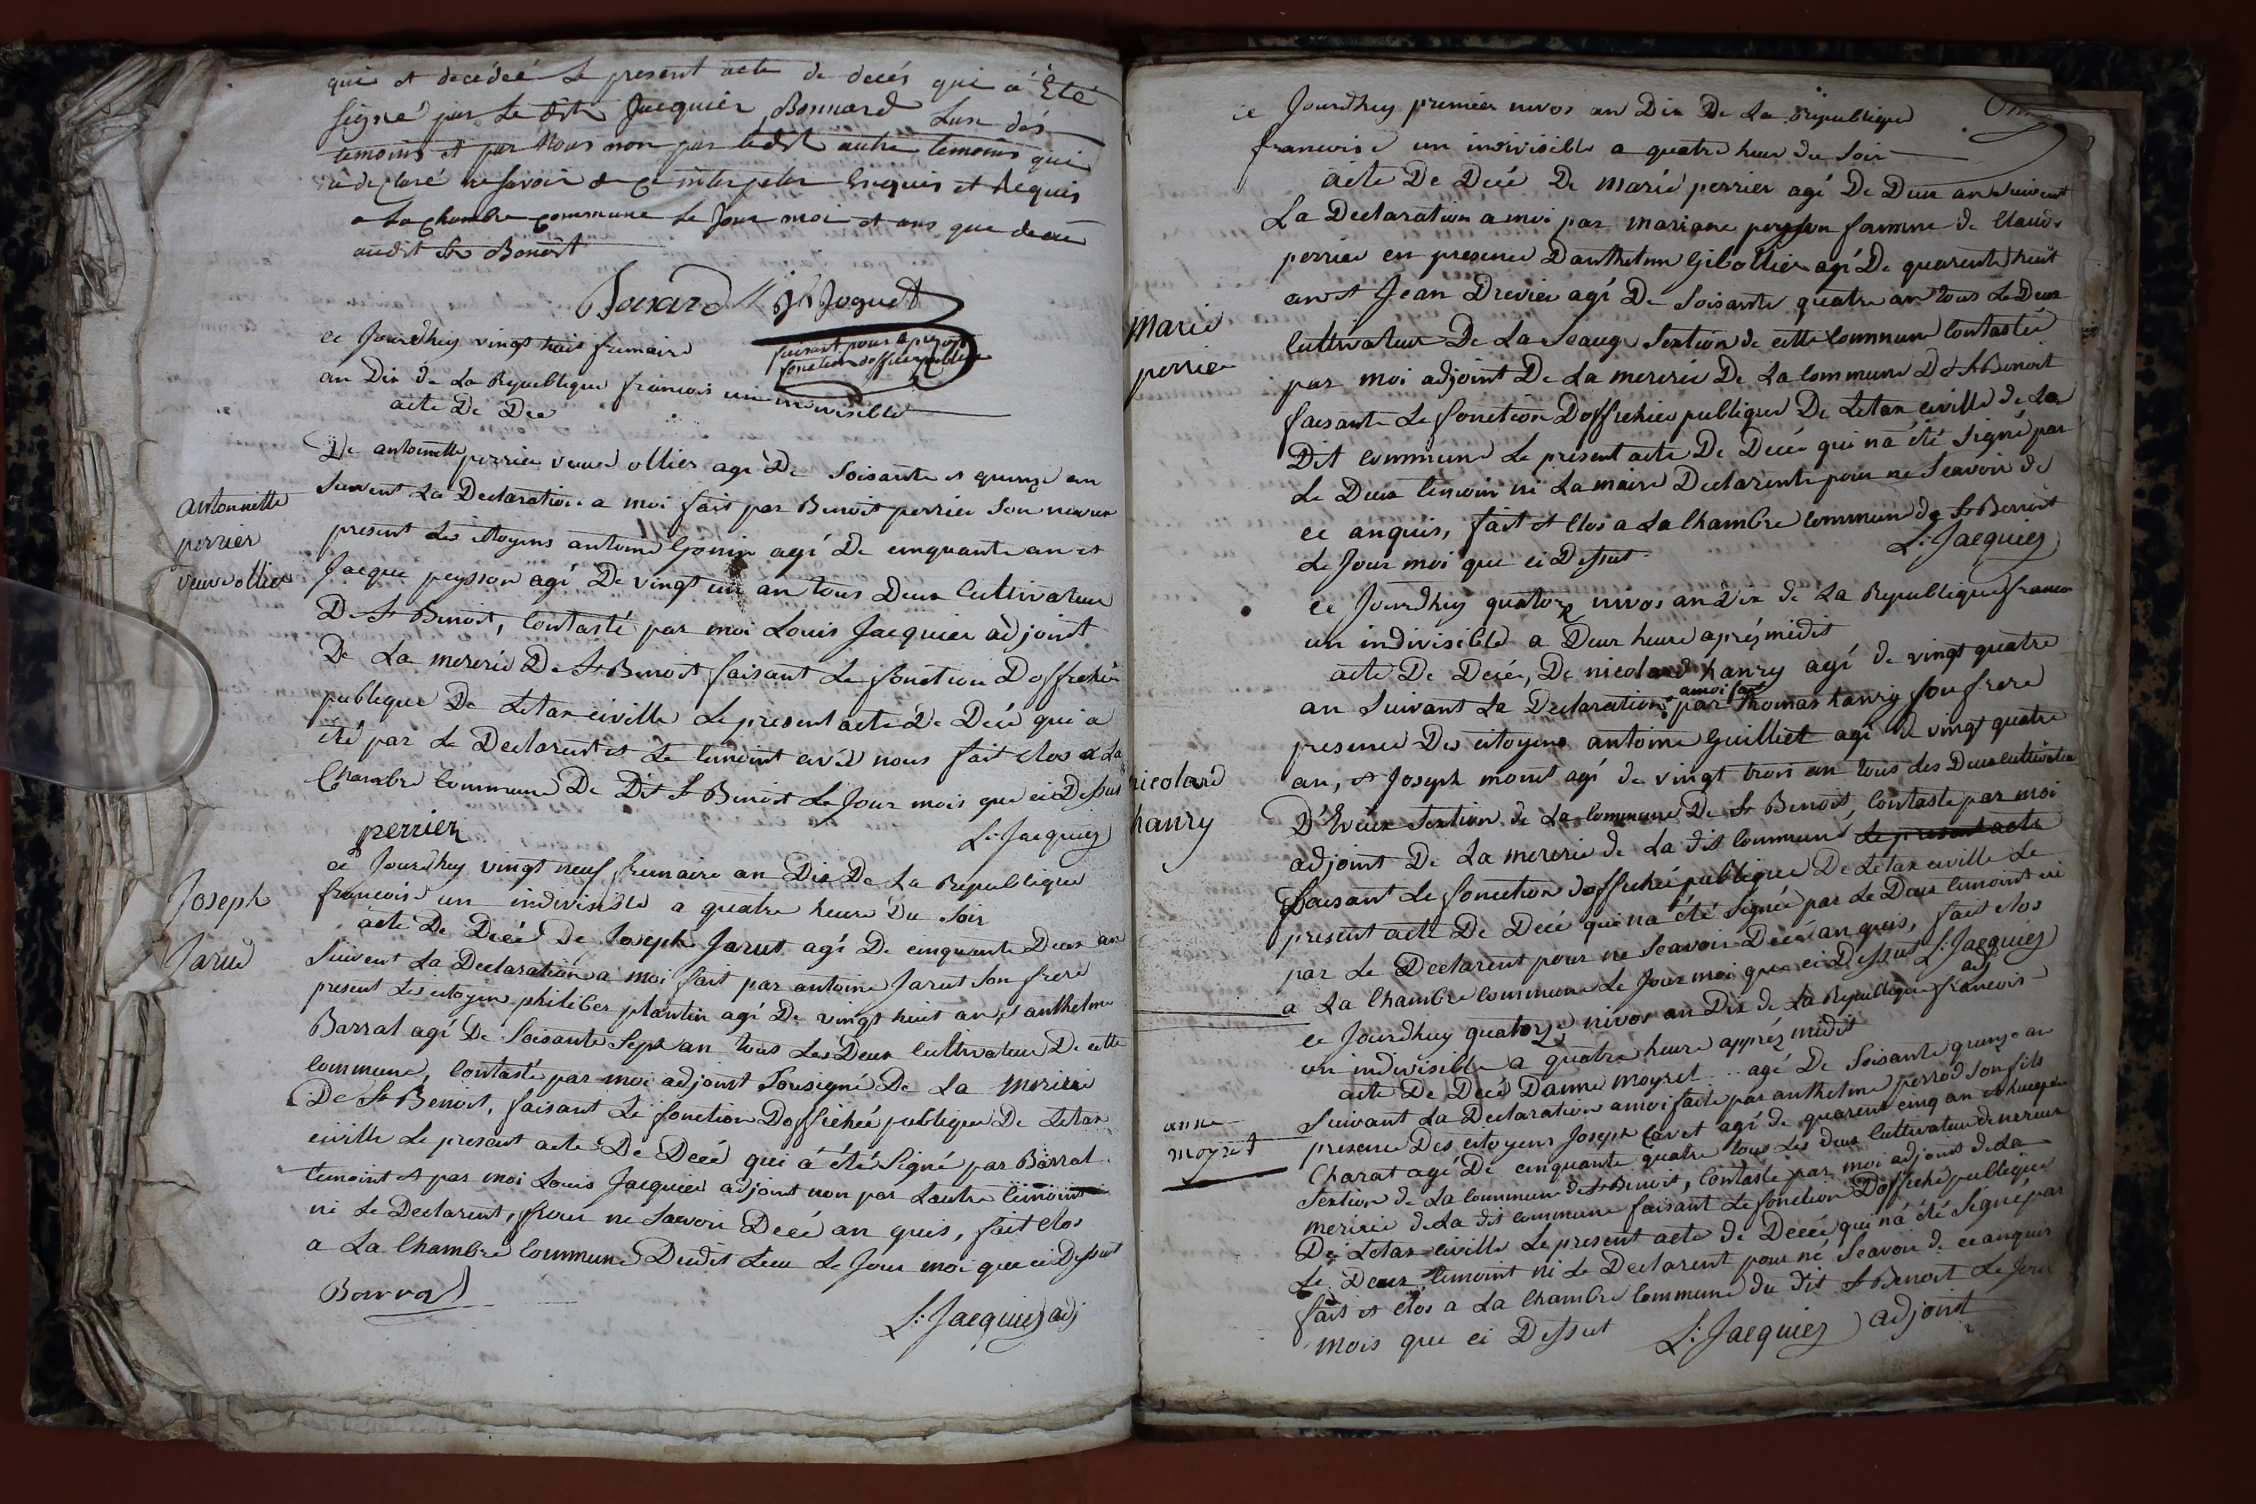 qui et decédeé Le present acte de decés qui a Eté
signé par Le dit Jacquier, Bonnard Lun des
temoins et par Nous non par ledit autre temoins qui
a declaré ne savoir de ce interpeller Enquis et Requis
a La Chambre Commune Le Jour moi et ans que dessu
audit St Benoit
Bonard J Joguet
faisant pour
fonction dofficier publique
ce Jourdhuy vingt huit frimaire
an Dix de La Republique francois un indivisible
acte De Dec
De antoinette perrier veuve ollier agé De Soisante et quinze an
Suivent La Declaration a moi fait par Benoit perrier Son neveu
present Les citoyens antoine Gonin agé De cinquante an et
Jacque peysson agé De vingt un an tous Deux Cultivateur
De St Benoit, Contasté par moi Louis Jacquier adjoint
De La mererie De St Benoit faisant Le fonction Doffichié
publique De Letax civille Le present acte De Decé qui a
été par Le Declarent et Le temoint avec nous fait clos a La
Chambre Commune De Dit St Benoit Le Jour mois que ci Dessus
perrier L. Jacquier
antoinette
perrier
veuve ollier
ce Jourdhuy vingt neuf frimaire an Dix De La Republique
francoise un indivisible a quatre heure Du Soir
acte De Decé De Joseph Jarut agé De cinquante Deux an
Suivent La Declaration a moi fait par antoine Jarut Son frere
present Les citoyen philiber plantin agé De vingt huit an, et anthelme
Barrat agé De Soisante Sept an tous Les Deux Cultivateur De cette
Commune, Contasté par moi adjoint Sousigné De La mererie
De St Benoit, faisant Le fonction Doffichié publique De Letax
civille Le present acte De Decé qui a été Signé par Barrat
temoint et par moi Louis Jacquier adjoint non par Lautre temoint
ni Le Declarent, pour ne Savoir Decé an quis, fait clos
a La Chambre Commune Dudit Lieu Le Jour moi que ci Dessut
Barrat
L. Jacquier adj
Joseph
Jarud
ce Jourdhuy premier nivos an Dix De La Republique
francoise un indivisible a quatre heur du Soir
acte De Decé De marie perrier agé De Deux an Suivent
La Declaration a moi par mariane peysson famme de Claude
perrier en presence Danthelme Gibollier agé De quarente huit
an et Jean Drevier agé De Soisante quatre an tous Le Deux
Cultivateur De La Seauge Sextion de cette Commun Contasté
par moi adjoint De La mererie De La Commune De St Benoit
faisante Le fonction Doffichier publique De Letax civille de La
Dit commune Le present acte De Decé qui na été Signé par
Le Deux temoin ni La maire Declarente pour ne Seavoir de
ce anquis, fait et Clos a La Chambre Commun de St Benoit
Le Jour moi que ci Dessut. L. Jacquier
marie
perrier
ce Jourdhuy quatorze nivos an Dix de La Republique francoi
un indivisible a Deux heure aprés midit
acte De Decé, De nicolard hanry agé de vingt quatre
an Suivant La Declaration amoi fait par Thomas hanry Son frere
presence Des citoyens antoine Guilliet agé de vingt quatre
an, et Joseph monet agé de vingt trois an tous des Deux cultivateu
D'Evieux Sextion de La Commune De St Benoit, Contaste par moi
adjoint De La mererie de La dit Commune Le present acte
faisant Le fonction doffichié publique De Letax civille Le
present acte De Decé qui na été Signée par Le Deux temoint ni
par Le Declarent pour ne Seavoir Decé an quis, fait clos
a La Chambre Commune Le Jour moi que ci Dessut L. Jacquier
adj
nicolard
hanry
ce Jourdhuy quatorze nivos an Dix de La Republique francois
un indivisible a quatre heure apprés midit
acte De Decé Danne moyret .. agé De Soisante quinze an
Suivant La Declaration a moi faite par anthelme perrod Son fils
presence Des citoyens Joseph Cavet agé de quarente cinq an et
Charat agé De cinquante quatre tous Les deux Cultivateur de
Sextion de La Commune de St Benoit, Contasté par moi adjoint de La
mererie de La dit commune faisant Le fonction Doffichié publique
De Letax civille Le present acte de Decé qui na été Signé par
Le Deux temoint ni Le Declarent pour né Seavoir de ce anquis
fait et clos a La Chambre Commune du dit St Benoit Le Jour
mois que ci Dessut L. Jacquier adjoint
anne
moyret